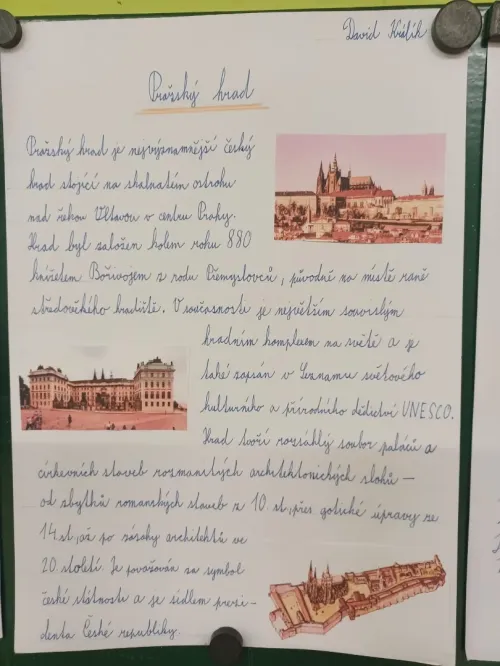 David Králík
Pražský hrad
Pražský hrad je nejvýznamnější český
hrad stojící na skalnatém ostrohu
nad řekou Vltavou v centru Prahy.
Hrad byl založen kolem roku 880
knížetem Bořivojem z rodu Přemyslovců, původně na místě raně
středověkého hradiště. V současnosti je největším souvislým
hradním komplexem na světě a je
také zapsán v Seznamu světového
kulturního a přírodního dědictví UNESCO.
Hrad tvoří rozsáhlý soubor paláců a
církevních staveb rozmanitých architektonických slohů –
od zbytků románských staveb z 10. st, přes gotické úpravy ze
14. st, až po zásahy architektů ve
20. století. Je považován za symbol
české státnosti a je sídlem prezi-
denta České republiky.